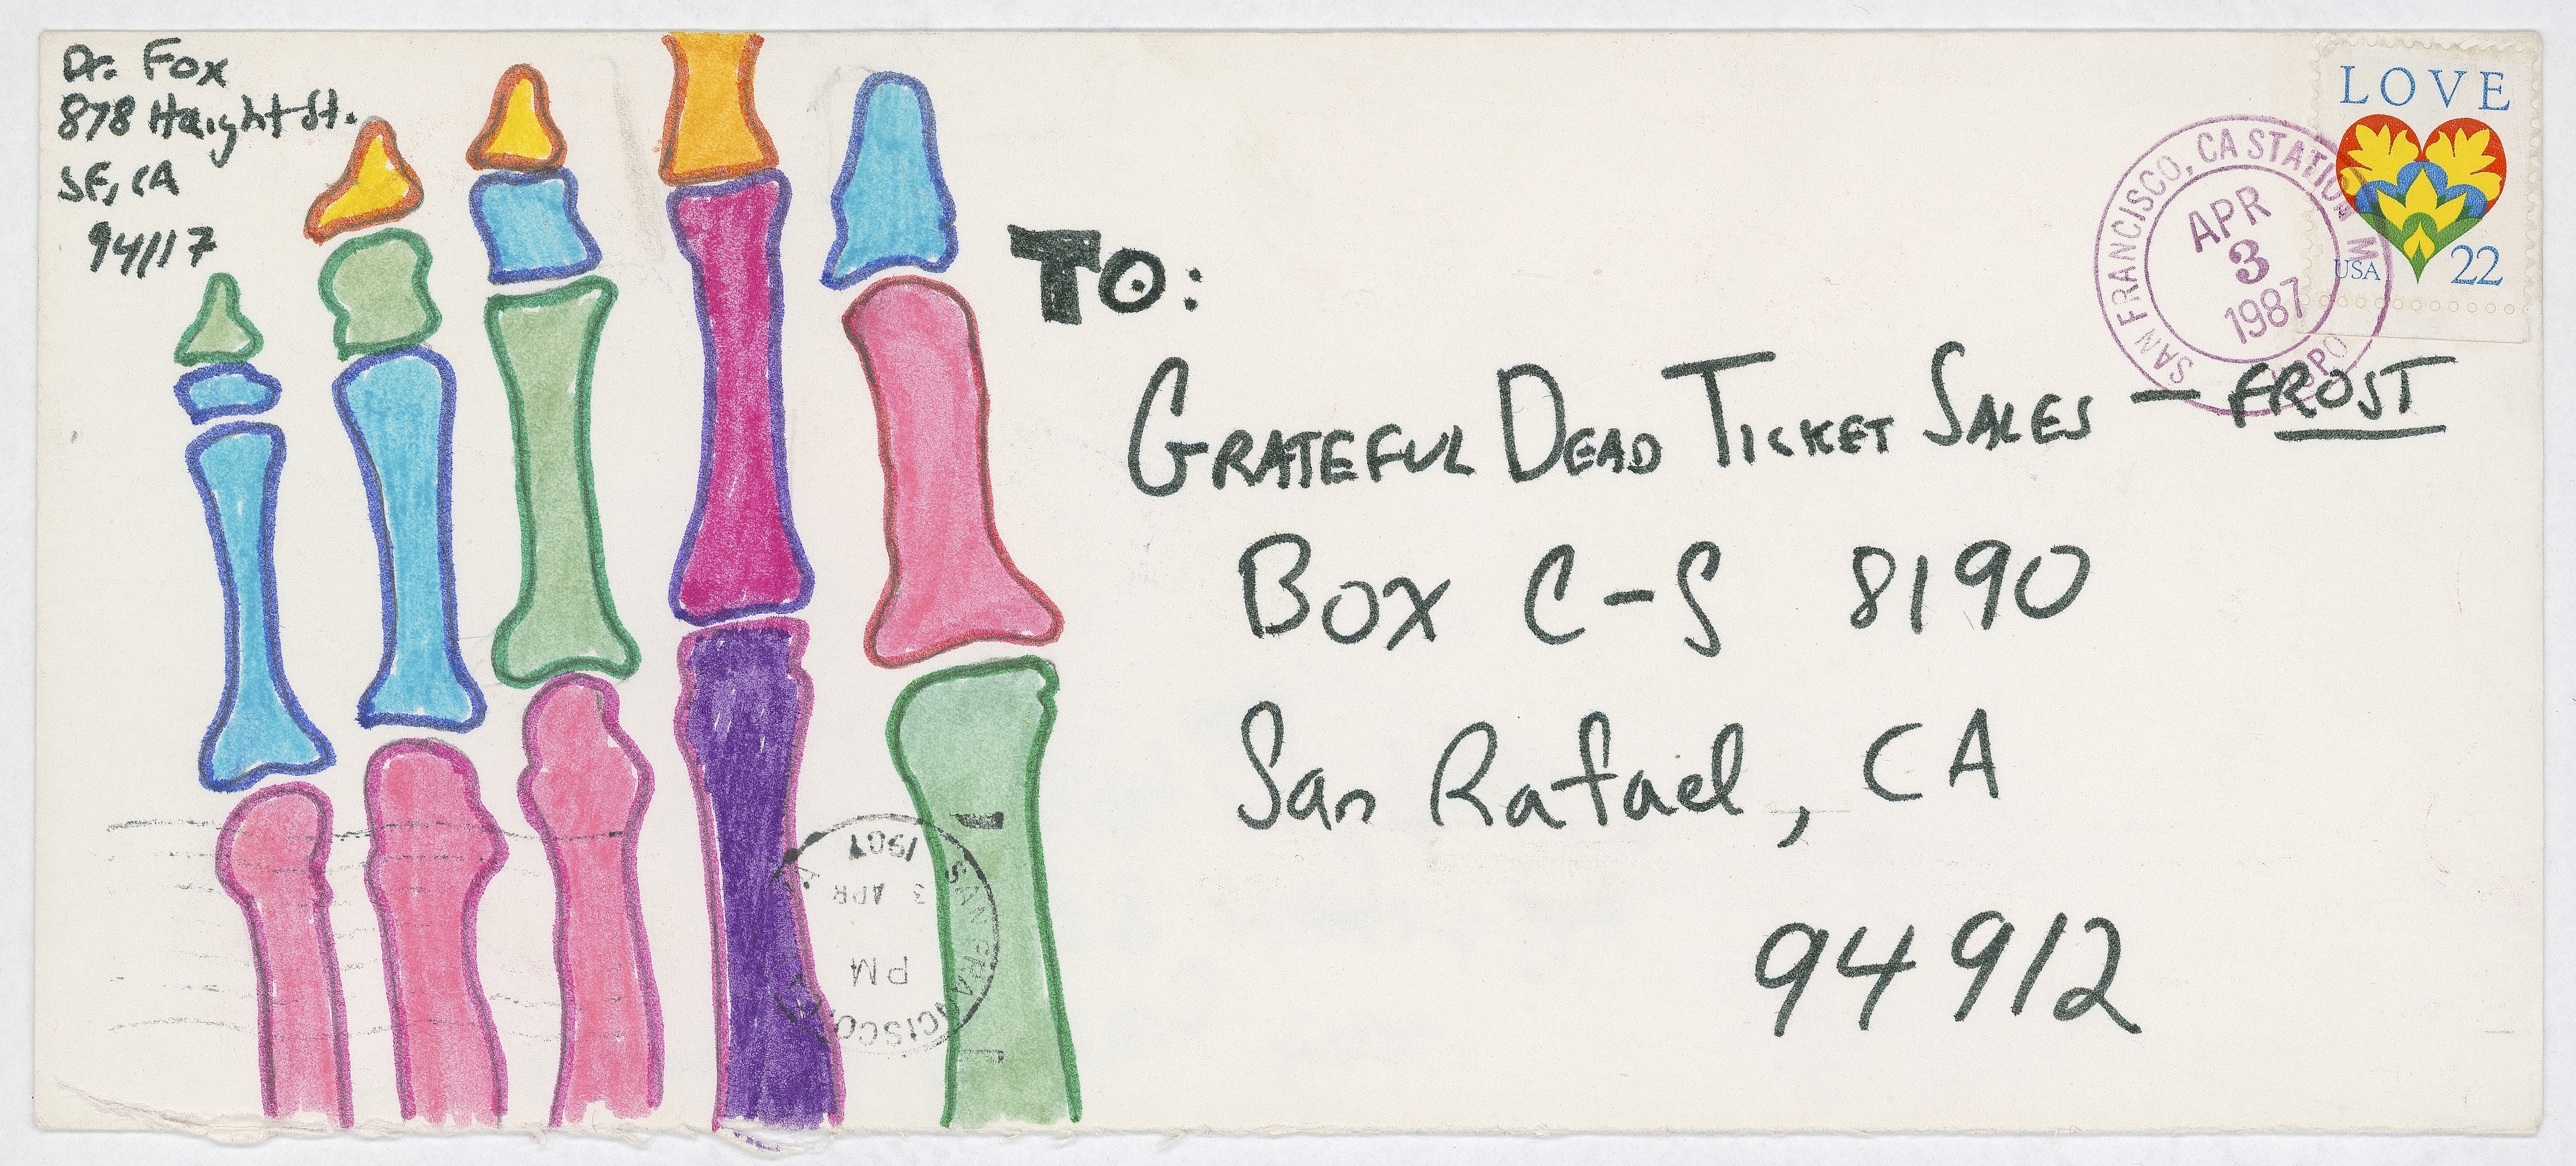 Dr. Fox
878 Haight St.
SF, CA
94117
LOVE
USA 22
SAN FRANCISCO, CA STATION M
APR
3
1987
TO:
GRATEFUL DEAD TICKET SALES — FROST
BOX C-S 8190
San Rafael, CA
94912
SAN FRANCISCO, CA
PM
3 APR
1987